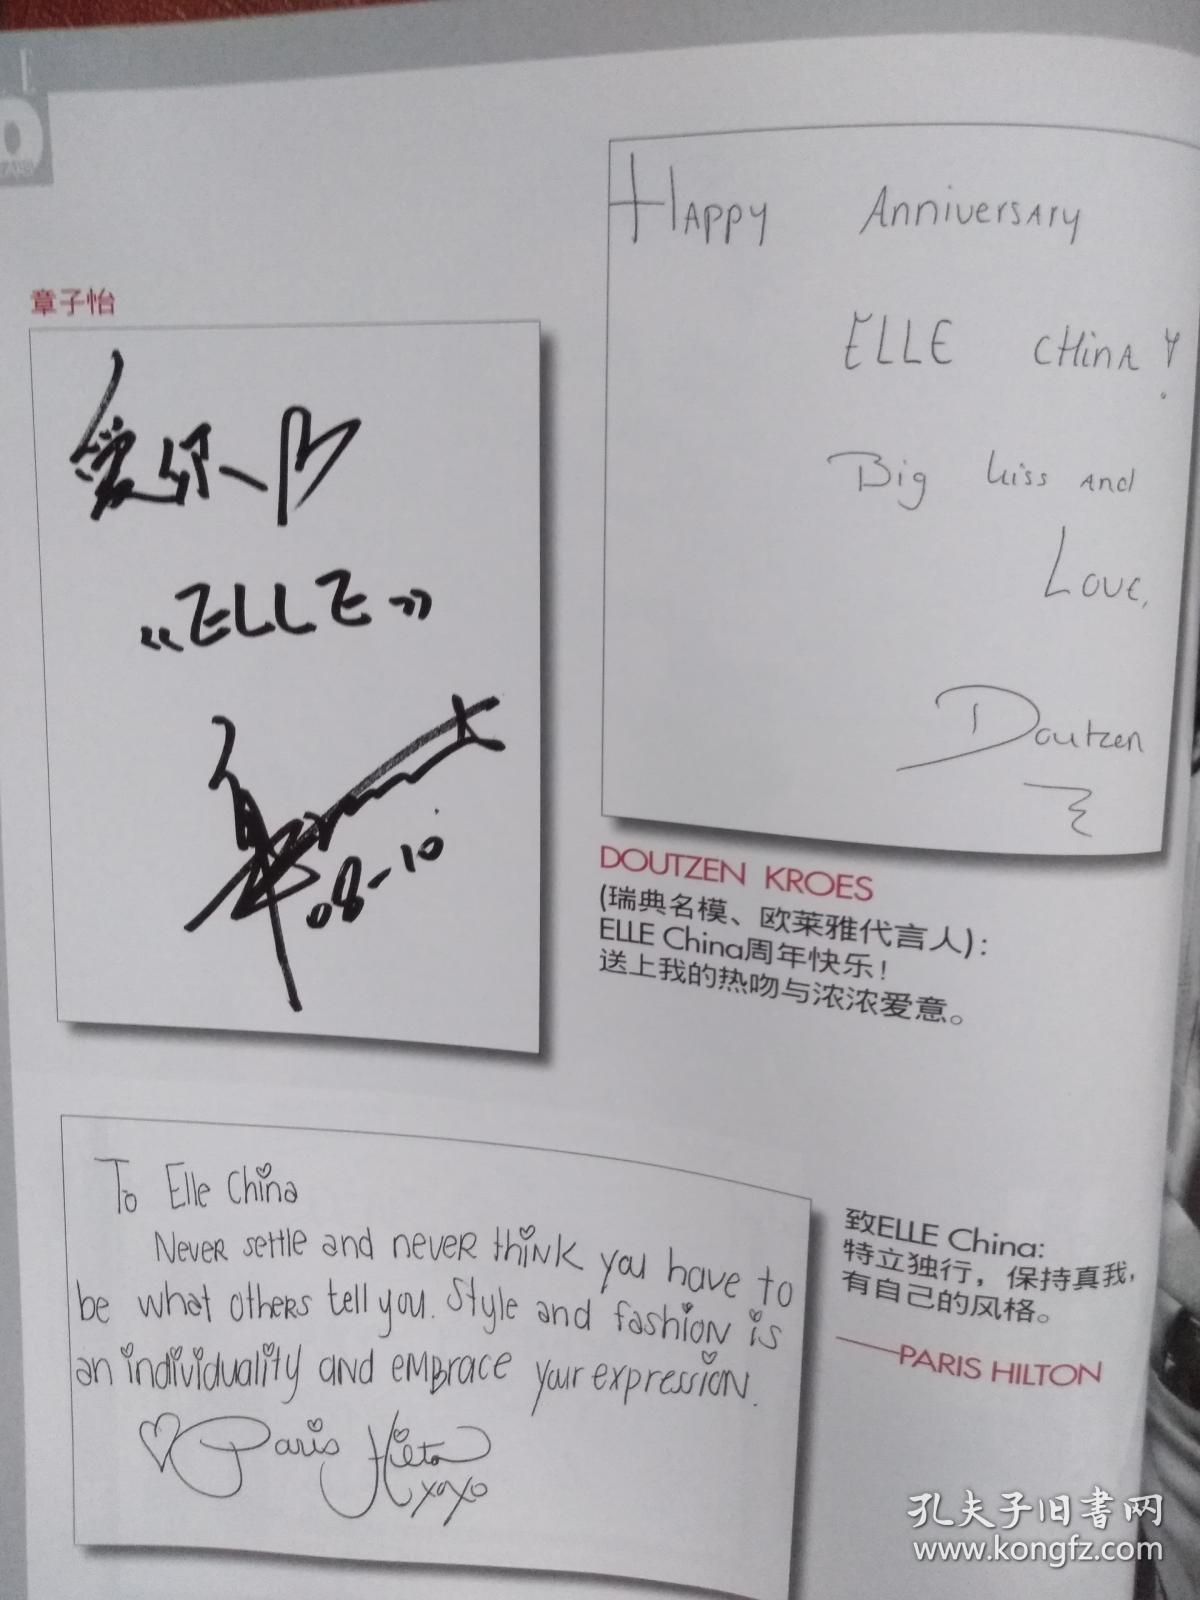 章子怡
爱你
《ELLE》
08-10
HAppy AnniversAry
ELLE CHinA!
Big kiss And
Love,
Doutzen
DOUTZEN KROES
(瑞典名模、欧莱雅代言人):
ELLE China周年快乐!
送上我的热吻与浓浓爱意。
To Elle China
Never settle and never think you have to
be what others tell you. Style and fashion is
an individuality and embrace your expression.
Paris Hilton
xoxo
致ELLE China:
特立独行，保持真我，
有自己的风格。
——PARIS HILTON
孔夫子旧书网
www.kongfz.com